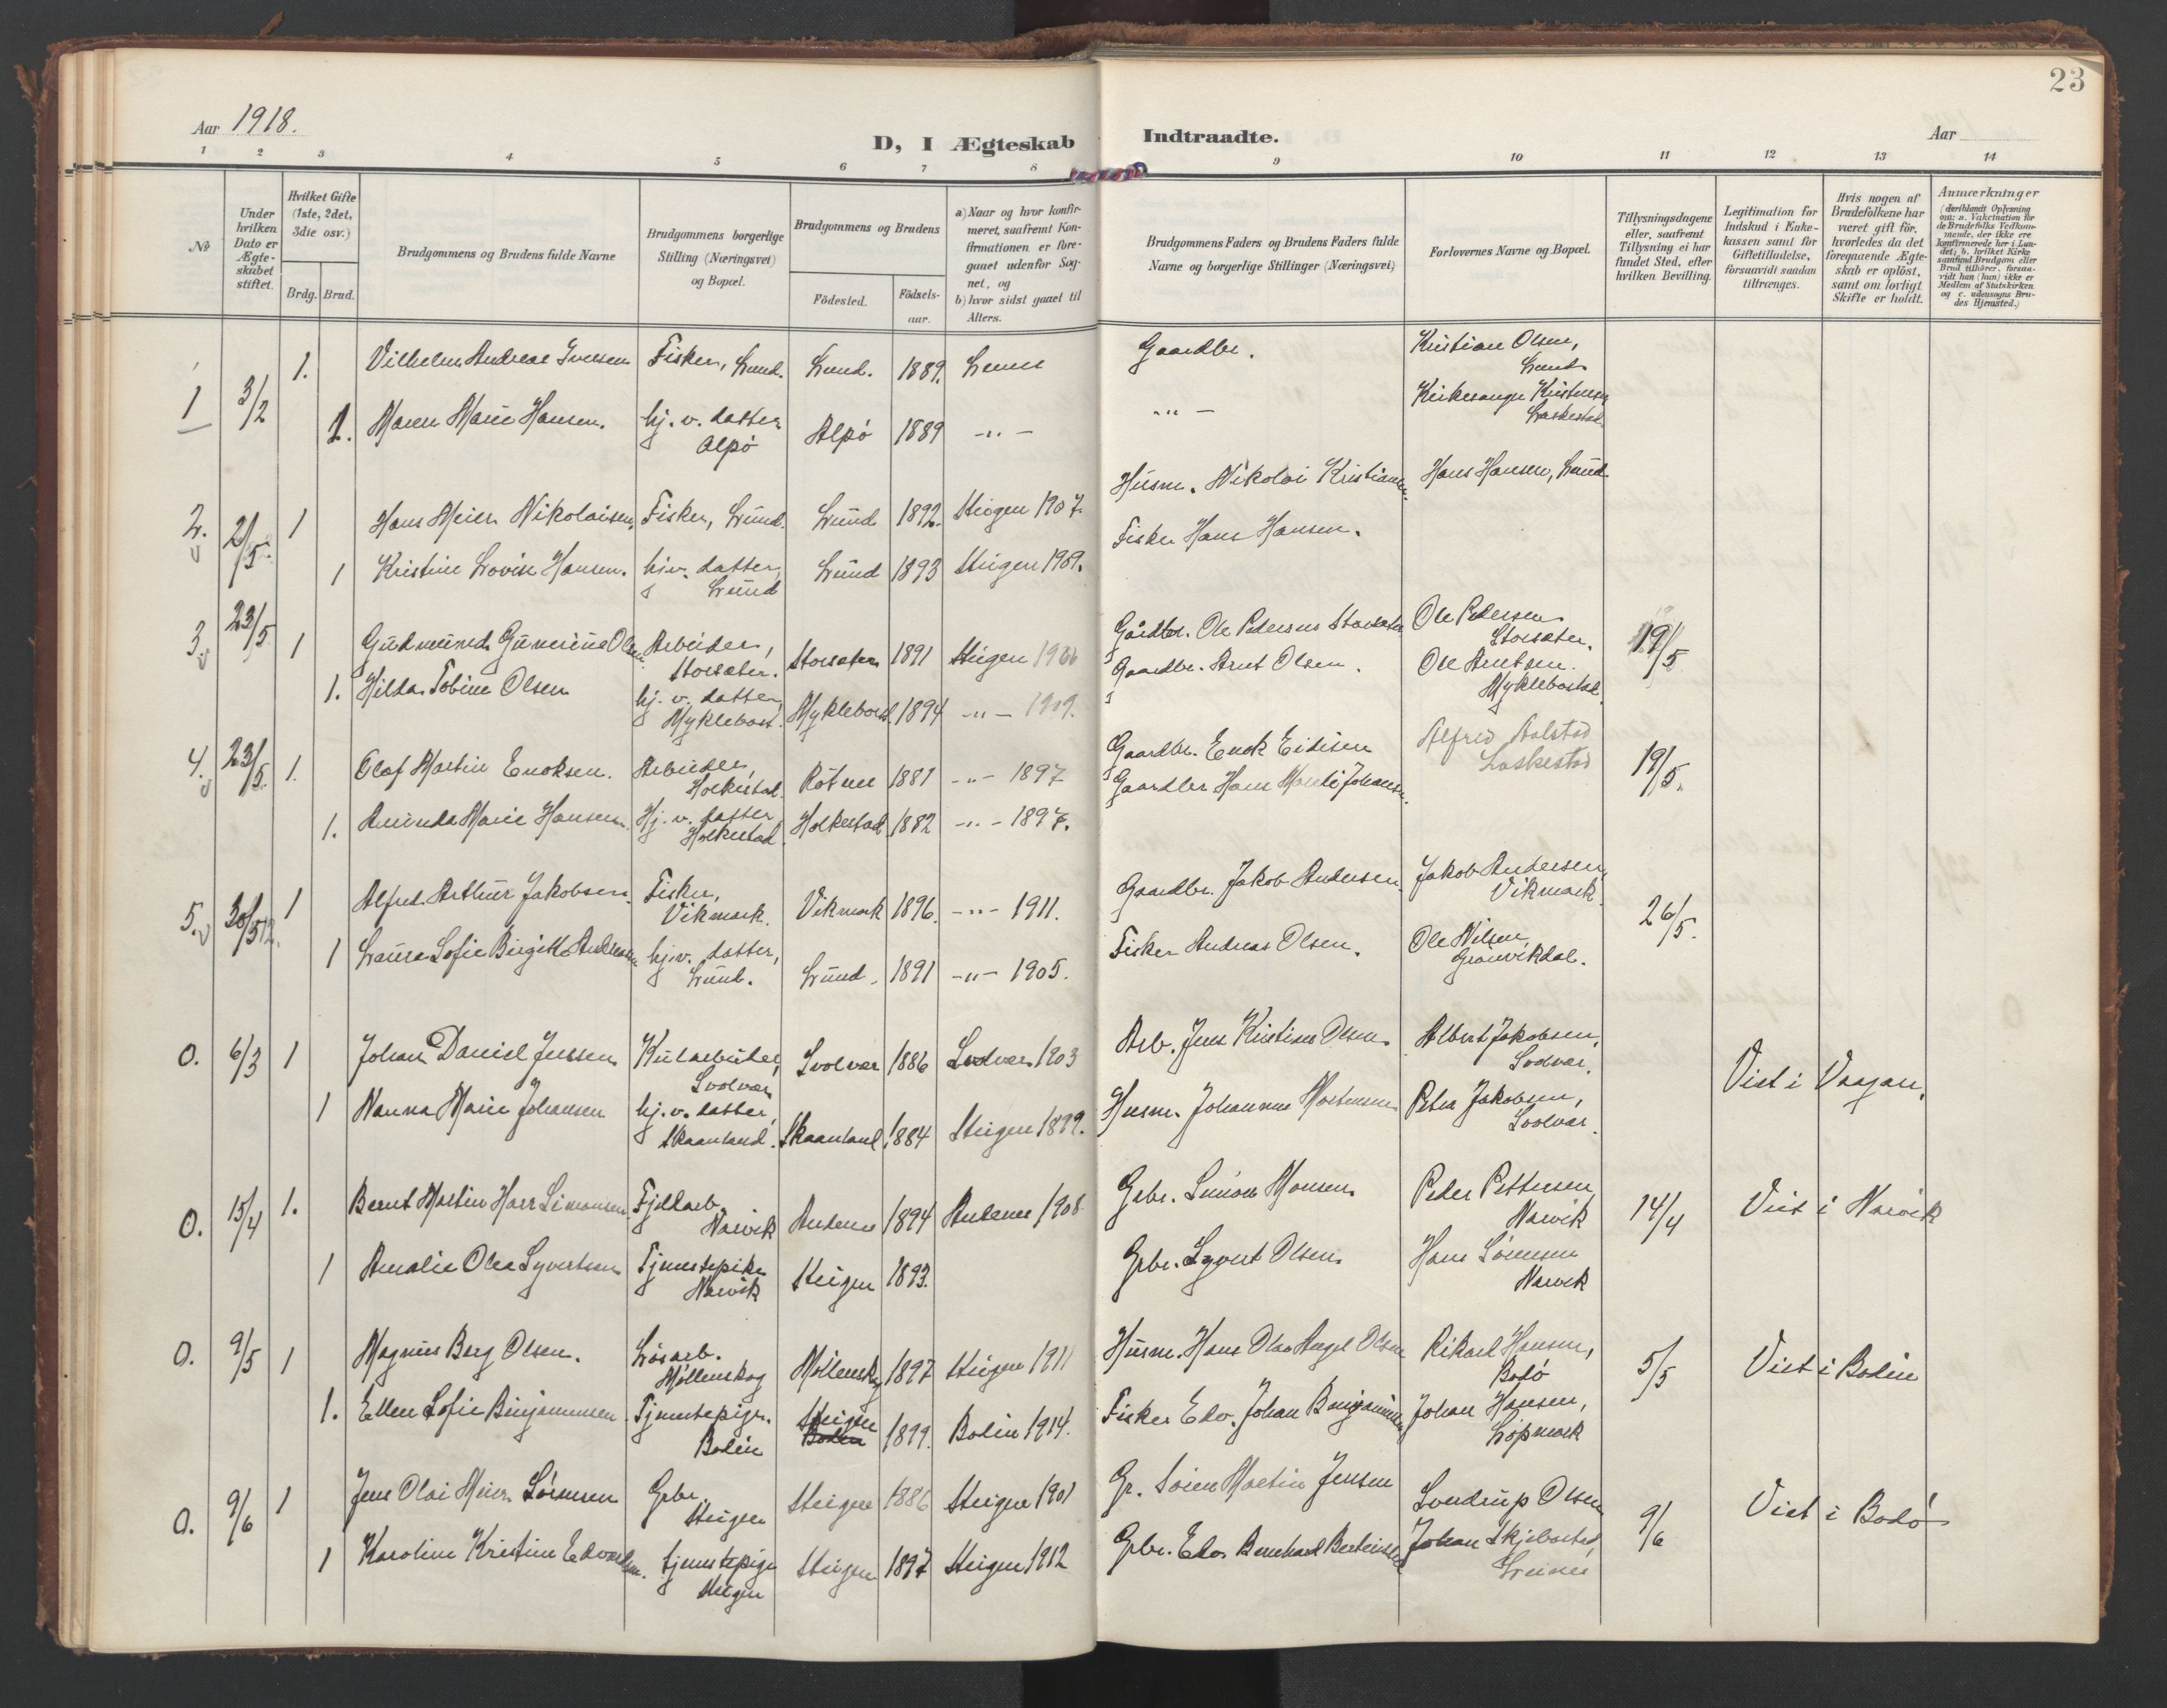 23
Aar 1918.
D, I Ægteskab Indtraadte.
Aar
1 2 3 4 5 6 7 8 9 10 11 12 13 14
No
Under hvilken Dato er Ægteskabet stiftet.
Hvilket Gifte (1ste, 2det, 3die osv.)
Brdg. Brud.
Brudgommens og Brudens fulde Navne
Brudgommens borgerlige Stilling (Næringsvei) og Bopæl.
Brudgommens og Brudens
Födested.
Födselsaar.
a) Naar og hvor konfirmeret, saafremt Konfirmationen er foregaaet udenfor Sognet, og
b) hvor sidst gaaet til Alters.
Brudgommens Faders og Brudens Faders fulde Navne og borgerlige Stillinger (Næringsvei)
Forlovernes Navne og Bopæl.
Tillysningsdagene eller, saafremt Tillysning ei har fundet Sted, efter hvilken Bevilling.
Legitimation for Indskud i Enkekassen samt for Giftetilladelse, forsaavidt saadan tiltrænges.
Hvis nogen af Brudefolkene har været gift för, hvorledes da det foregaaende Ægteskab er oplöst, samt om lovligt Skifte er holdt.
Anmærkninger
(deriblandt Oplysning om: a. Vakcination for de Brudefolks Vedkommende, der ikke ere konfirmerede her i Landet; b. hvilket Kirkesamfund Brudgom eller Brud tilhörer, forsaavidt han (hun) ikke er Medlem af Statskirken og c. udensogns Brudes Hjemsted.)
1 3/2 1. Vilhelm Andreas Iversen Fisker, Lund. Lund. 1889. Gaardbr. Kristian Olsen, Lund
1. Maren Marie Hansen. hj. v. datter Alpö Alpö 1889 -"- -"- Kirkesanger Kristensen Laskestad.
2. 2/5. 1 Hans Meier Nikolaisen, Fisker, Lund. Lund 1892. Steigen 1907. Husm. Nikolai Kristiansen. Hans Hansen, Lund
1 Kristine Lovise Hansen. hj.v. datter, Lund Lund 1893 Steigen 1909. Fisker Hans Hansen.
3. 23/5 1 Gudmund Gunerius Olsen Arbeider, Storsæter. Storsæter 1891 Steigen 1906 Gårdbr. Ole Pedersen Storsæter Ole Pedersen Storsæter. 19/5
1. Hilda Tobine Olsen hj. v. datter, Myklebost. Myklebost. 1894 -"- 1909. Gaardbr. Arnt Olsen. Ole Arntsen. Myklebostad
4. 23/5. 1. Olaf Martin Enoksen. Arbeider, Holkestad. Rötnes 1881 -"- 1897 Gaardbr. Enok Eidisen Alfred Aalstad Laskestad 19/5.
1. Aminda Marie Hansen. Hj. v. datter Holkestad. Holkestad. 1882 -"- 1897. Gaardbr Hans Martin Johansen.
5. 30/5 12. 1 Alfred Arthur Jakobsen. Fisker, Vikmark. Vikmark 1896. -"- 1911. Gaardbr. Jakob Andersen. Jakob Andersen, Vikmark. 26/5.
1 Laura Sofie Birgitte Andreasen hj.v. datter, Lund. Lund. 1891 -"- 1905. Fisker Andreas Olsen. Ole Nilsen, Grönvikdal.
0. 6/3 1 Johan Daniel Jensen Kularbeider, Svolvær Svolvær 1886 Svolvær 1903 Arb. Jens Kristian Olsen Albert Jakobsen, Svolvær. Viet i Vaagan.
1 Nanna Marie Johansen hj.v. datter, Skaanland. Skaanland 1884 Steigen 1899. Husm. Johannes Mortensen Peter Jakobsen, Svolvær.
0. 15/4 1. Bernt Martin Harr Simonsen Fjeldarb. Narvik Andenes 1894 Andenes 1908 Gbr. Simon Monsen Peder Pettersen Narvik 14/4 Viet i Narvik
1 Amalie Olea Syvertsen Tjenestepike Narvik Steigen 1893. Gbr. Syvert Olsen Hans Sörensen Narvik
0. 9/5 1 Magnus Berg Olsen. Lösarb. Möllenskog Möllenskog 1897 Steigen 1911 Husm. Hans Olav Angel Olsen Rikard Hansen, Bodö 5/5 Viet i Bodin
1. Ellen Sofie Benjaminsen Tjenestepige. Bodin Steigen Bodin 1899. Bodin 1914. Fisker Edv. Johan Benjaminsen Johan Hansen, Löpmark
0. 9/6 1 Jens Olai Meier Sörensen Gbr. Steigen Steigen 1886 Steigen 1901 Gr. Sören Martin Jensen Sverdrup Olsen 9/6 Viet i Bodö
1 Karoline Kristine Edvardsen. tjenestepige Steigen Steigen 1897 Steigen 1912 Gbr. Edv. Bernhard Berteussen Johan Skjelstad,